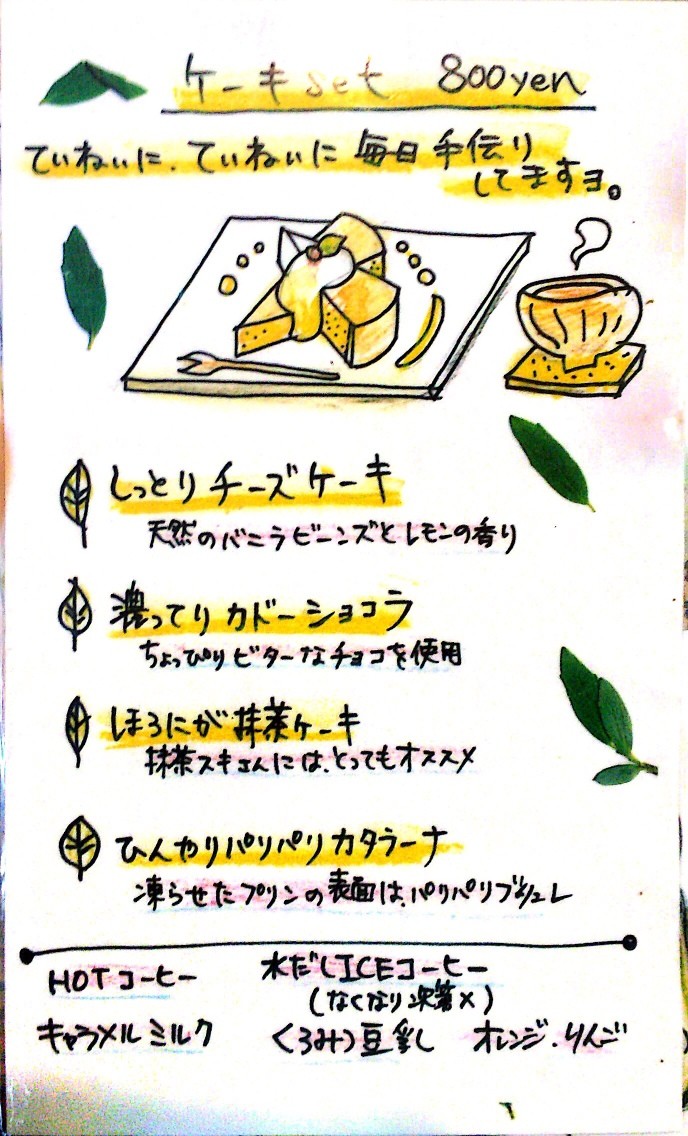 ケーキset 800yen
ていねいに、ていねいに 毎日 手伝り
してますヨ。
しっとり チーズケーキ
天然のバニラビーンズとレモンの香り
濃ってり カドーショコラ
ちょっぴりビターなチョコを使用
ほろにが抹茶ケーキ
抹茶スキさんには、とってもオススメ
ひんやりパリパリカタラーナ
凍らせたプリンの表面は、パリパリブリュレ
HOTコーヒー 水だしICEコーヒー
(なくなり次第×)
キャラメルミルク くろみつ豆乳 オレンジ・りんご